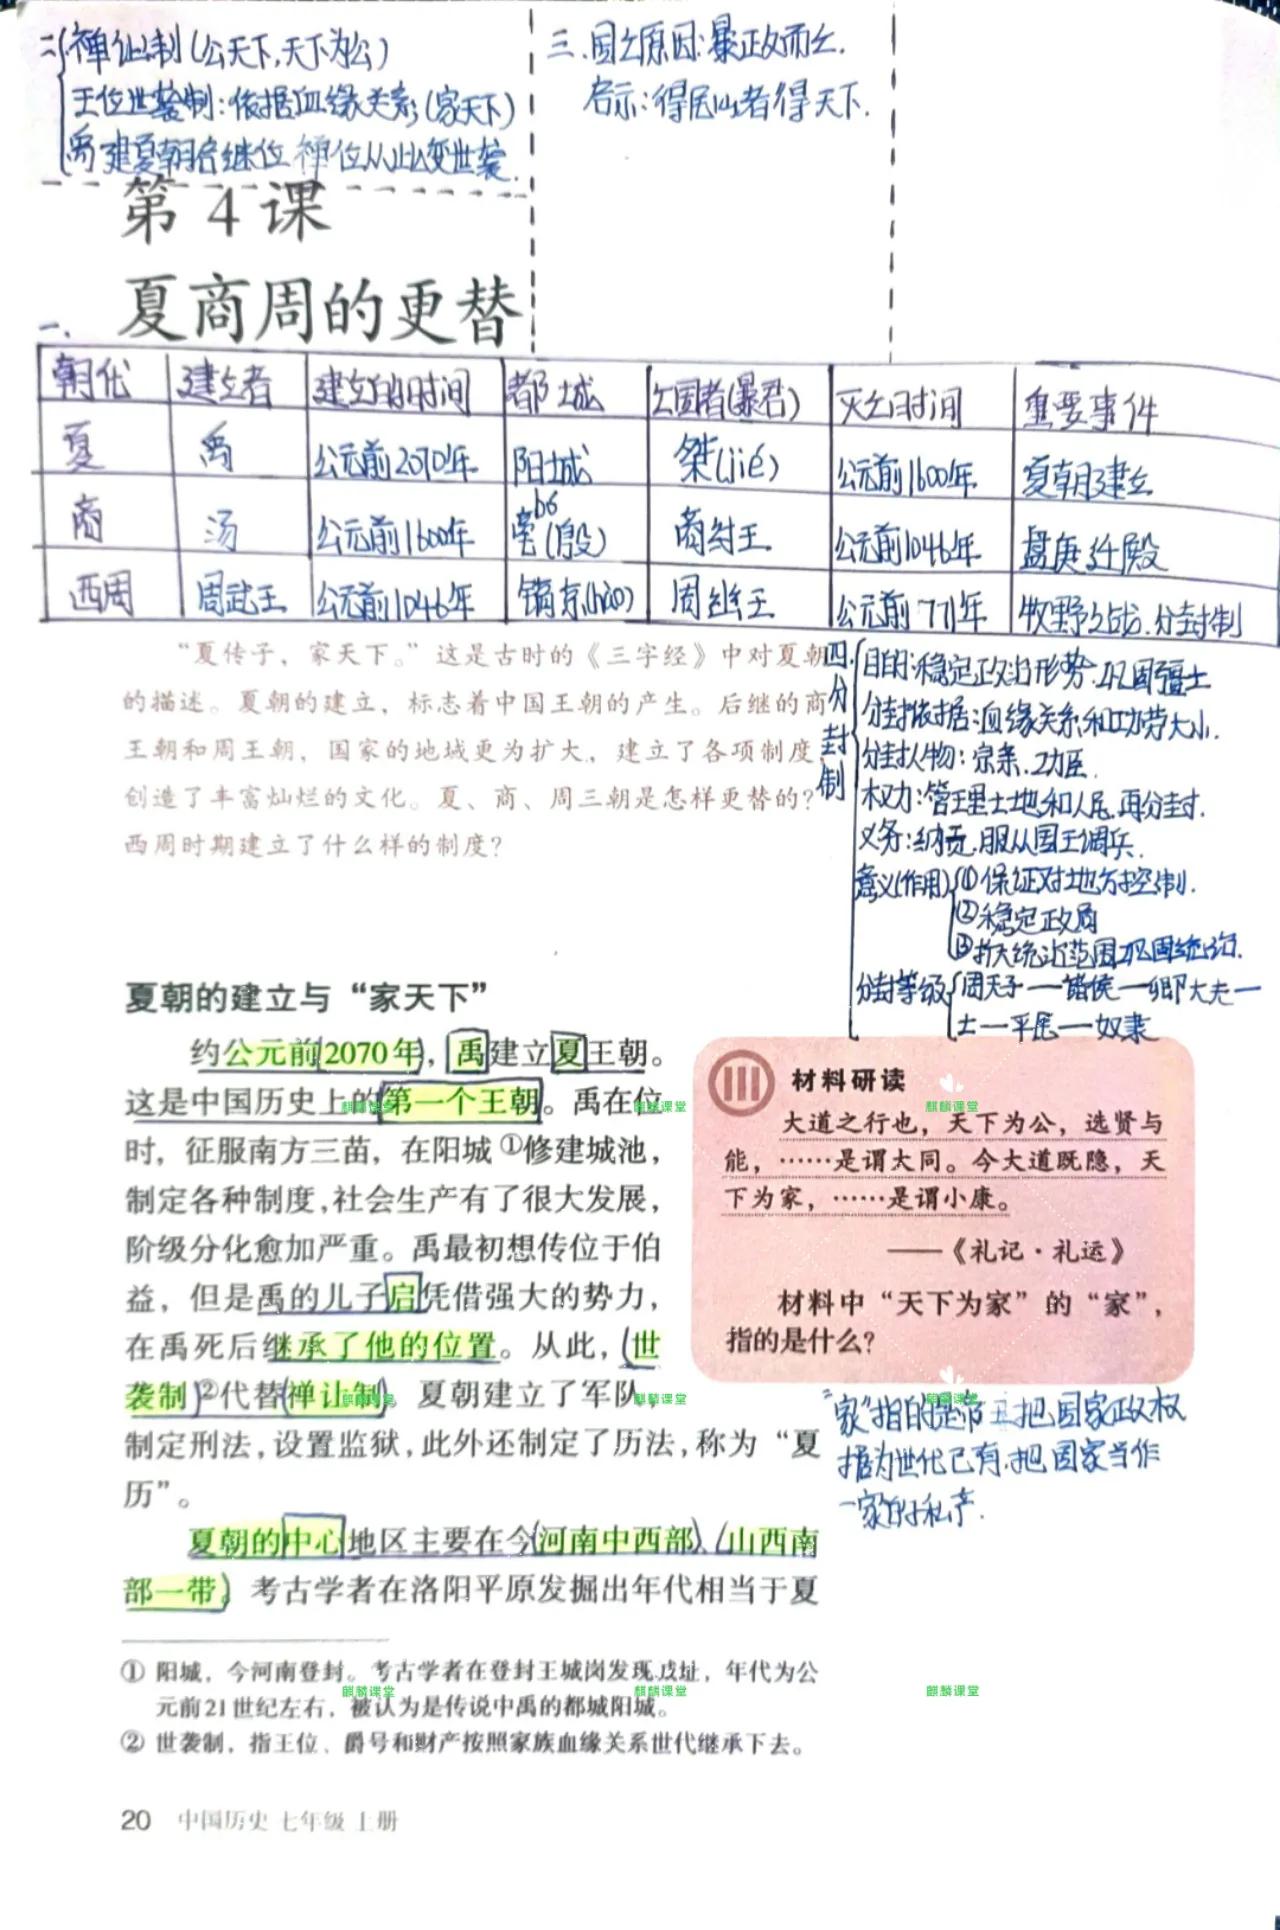 二、禅让制(公天下,天下为公)
王位世袭制:依据血缘关系;(家天下)
禹建夏朝启继位,禅位从此变世袭.
三.国亡原因:暴政而亡.
启示:得民心者得天下.
第4课
夏商周的更替
一、
朝代 建立者 建立的时间 都城 亡国者(暴君) 灭亡时间 重要事件
夏 禹 公元前2070年 阳城 桀(jié) 公元前1600年 夏朝建立
商 汤 公元前1600年 亳(殷) 商纣王 公元前1046年 盘庚迁殷
西周 周武王 公元前1046年 镐京(hào) 周幽王 公元前771年 牧野之战.分封制
“夏传子，家天下。”这是古时的《三字经》中对夏朝
的描述。夏朝的建立，标志着中国王朝的产生。后继的商
王朝和周王朝，国家的地域更为扩大，建立了各项制度，
创造了丰富灿烂的文化。夏、商、周三朝是怎样更替的？
西周时期建立了什么样的制度？
四.分封制
目的:稳定政治形势.巩固疆土
分封依据:血缘关系和功劳大小.
分封人物:宗亲.功臣.
权力:管理土地和人民.再分封.
义务:纳贡.服从国王调兵.
意义(作用)①保证对地方控制.
②稳定政局
③扩大统治范围巩固统治.
分封等级 周天子—诸侯—卿大夫—
士—平民—奴隶
夏朝的建立与“家天下”
约公元前2070年，禹建立夏王朝。
这是中国历史上的第一个王朝。禹在位
时，征服南方三苗，在阳城①修建城池，
制定各种制度，社会生产有了很大发展，
阶级分化愈加严重。禹最初想传位于伯
益，但是禹的儿子启凭借强大的势力，
在禹死后继承了他的位置。从此，世
袭制②代替禅让制。夏朝建立了军队，
制定刑法，设置监狱，此外还制定了历法，称为“夏
历”。
夏朝的中心地区主要在今河南中西部、山西南
部一带。考古学者在洛阳平原发掘出年代相当于夏
材料研读
大道之行也，天下为公，选贤与
能，……是谓大同。今大道既隐，天
下为家，……是谓小康。
——《礼记·礼运》
材料中“天下为家”的“家”，
指的是什么？
“家”指的是 把国家政权
据为世代己有.把国家当作
一家的私产.
① 阳城，今河南登封。考古学者在登封王城岗发现 址，年代为公
元前21世纪左右，被认为是传说中禹的都城阳城。
② 世袭制，指王位、爵号和财产按照家族血缘关系世代继承下去。
20 中国历史 七年级 上册
麒麟课堂 麒麟课堂 麒麟课堂
麒麟课堂 麒麟课堂 麒麟课堂
麒麟课堂 麒麟课堂 麒麟课堂